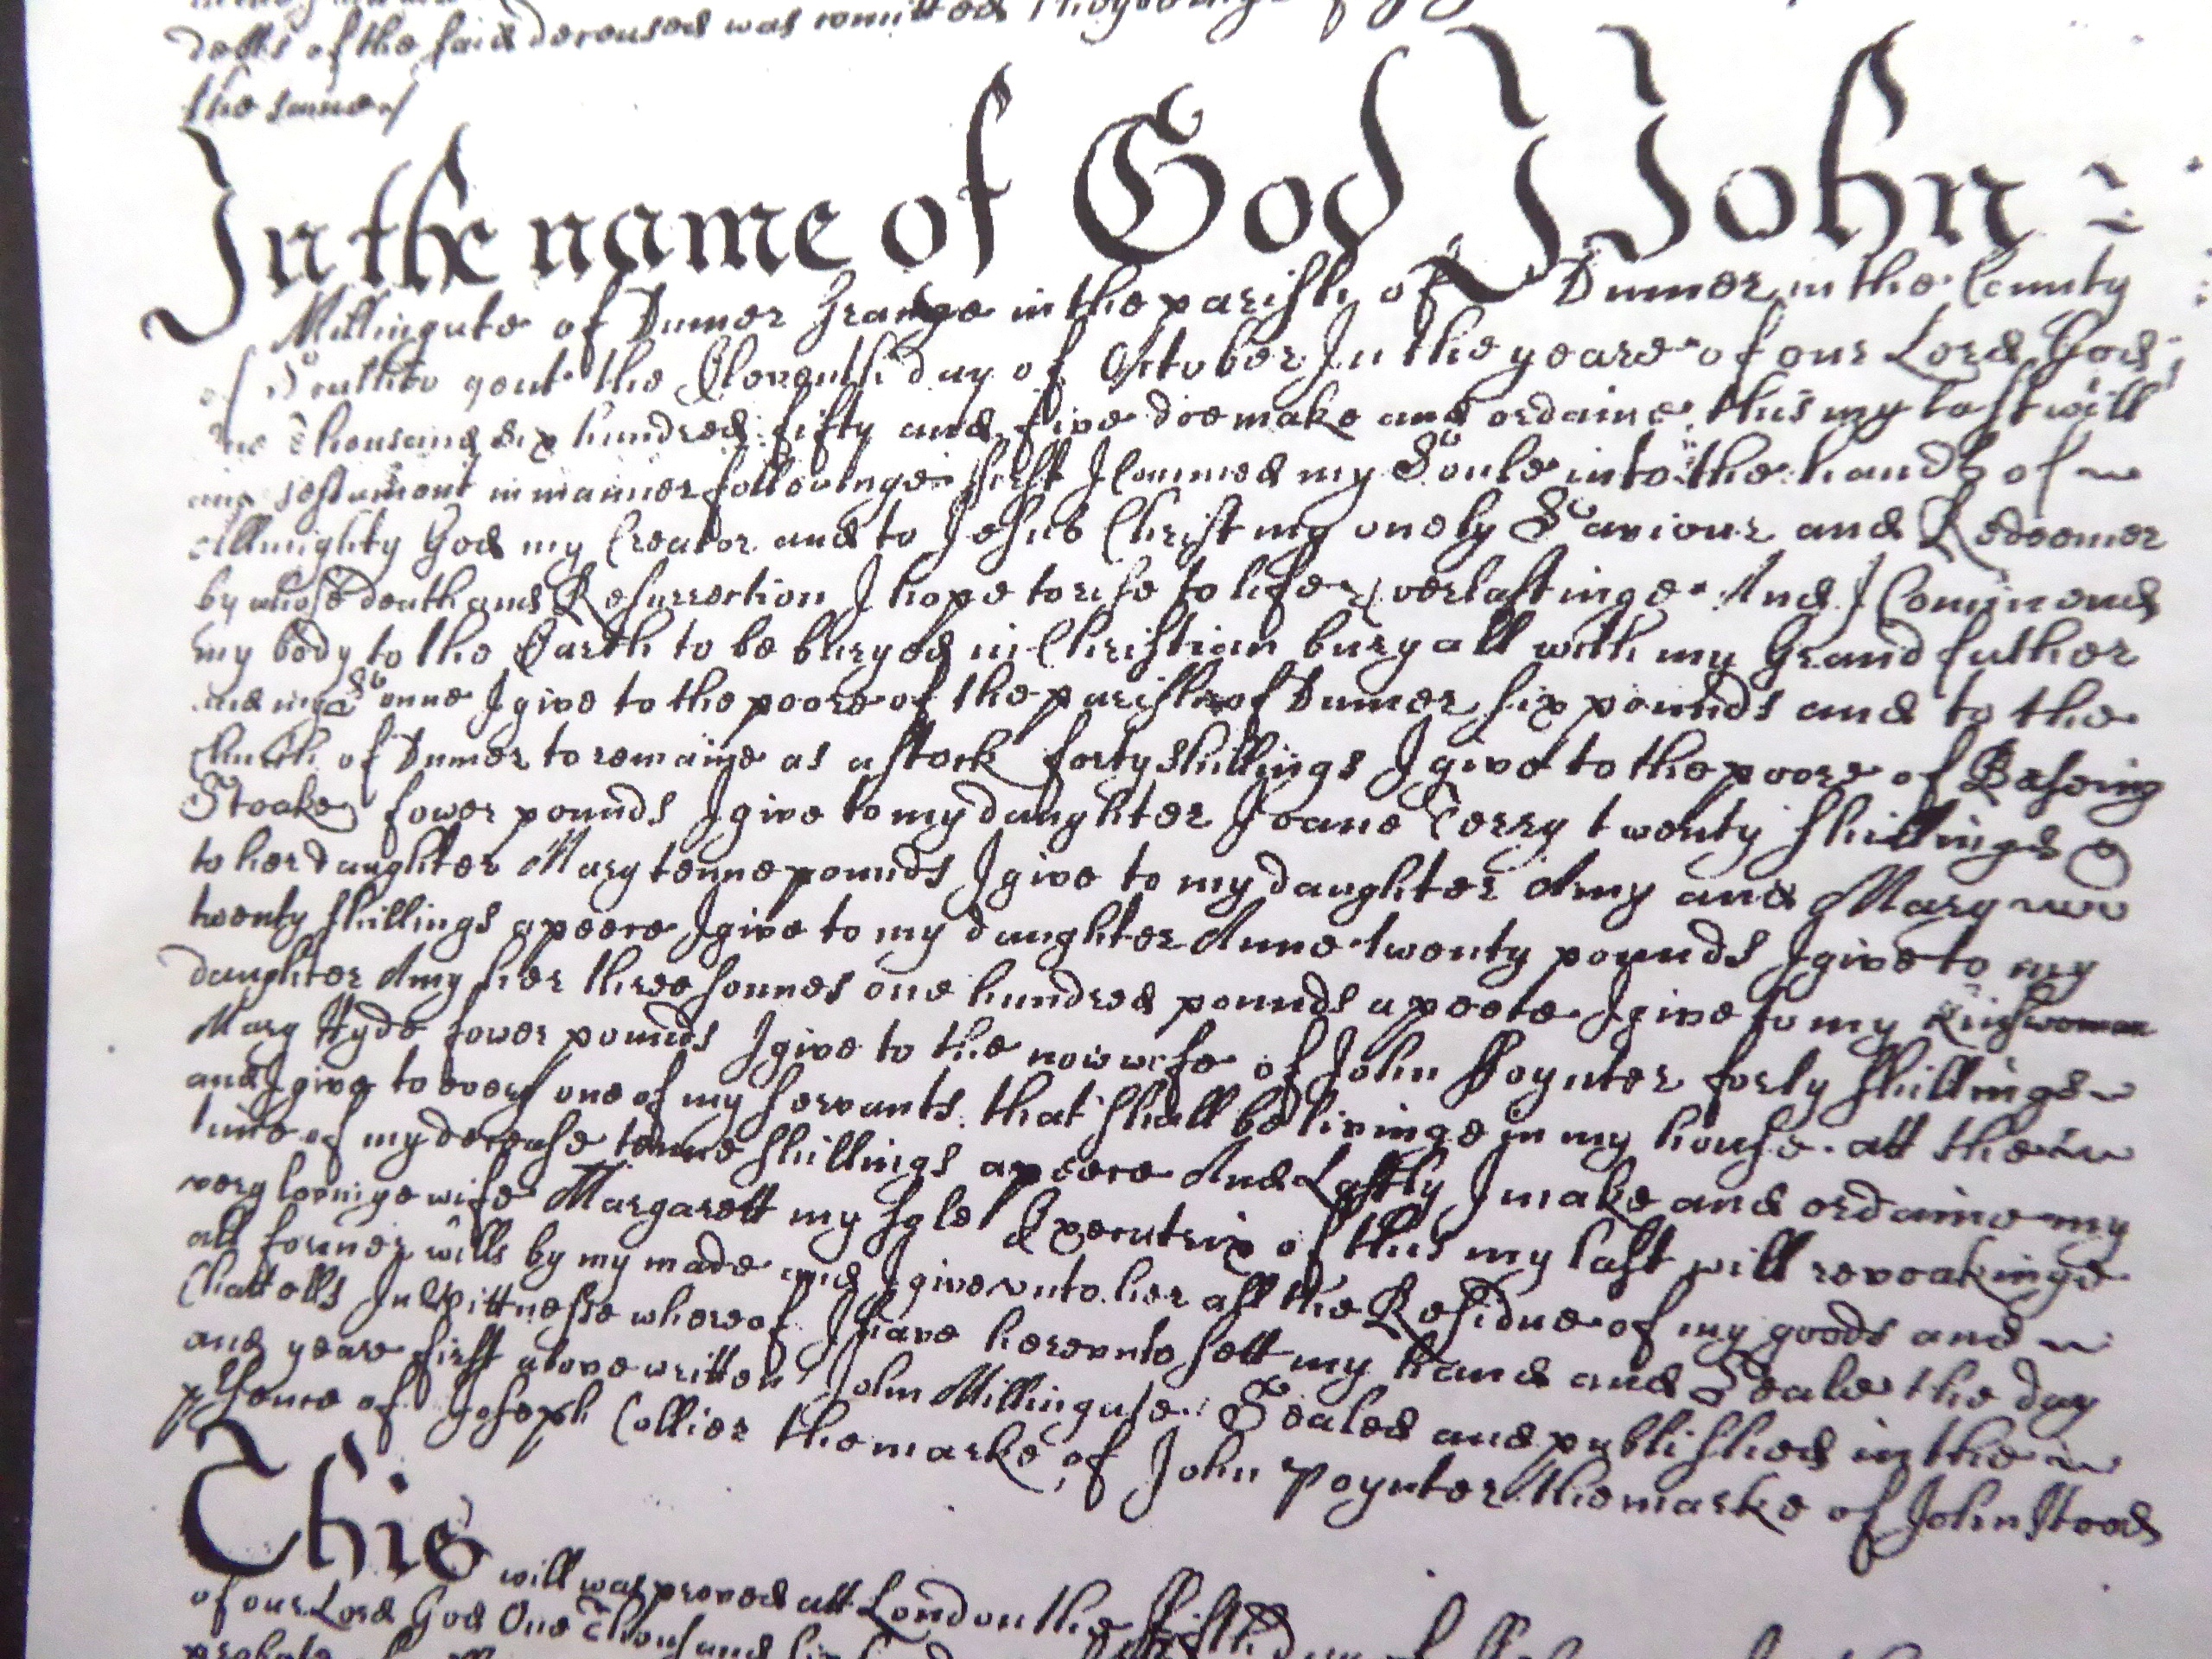 debts of the said deceased was comitted
the same/
In the name of God I John
Millingate of Dumer Grange in the parish of Dumer in the County
of Southton gent the Eleventh day of October In the yeare of our Lord God
one thousand six hundred fifty and five doe make and ordaine this my last will
and testament in manner followinge first I Commed my Soule into the hands of
Allmighty God my Creator and to Jesus Christ my onely Saviour and Redeemer
by whose death and Resurrection I hope to rise to life everlastinge And I Commend
my body to the Earth to be buryed in Christian buryall with my Grandfather
and my Sonne I give to the poore of the parish of Dumer six pounds and to the
Church of Dumer to remaine as a stock forty shillings I give to the poore of Baseing
Stoake fower pounds I give to my daughter Joane Terry twenty shillings &
to her daughter Mary tenne pounds I give to my daughter Amy and Mary
twenty shillings a peece I give to my daughter Anne twenty pounds I give to my
daughter Amy her three sonnes one hundred pounds a peece I give to my Kinswoman
Mary Hyde fower pounds I give to the now wife of John Poynter forty shillings
and I give to every one of my servants that shall be livinge in my house att the
time of my decease tenne shillings a peece And Lastly I make and ordaine my
very lovinge wife Margarett my sole Executrix of this my last will revoakinge
all former wills by my made and I give unto her all the Residue of my goods and
Chattells In Wittnesse whereof I have hereunto sett my hand and Seale the day
and yeare first above written John Millingate Sealed and published in the
psence of Joseph Collier the marke of John Poynter the marke of John Stood
This will was proved att London the fifth day of
of our Lord God One Thousand six
probate